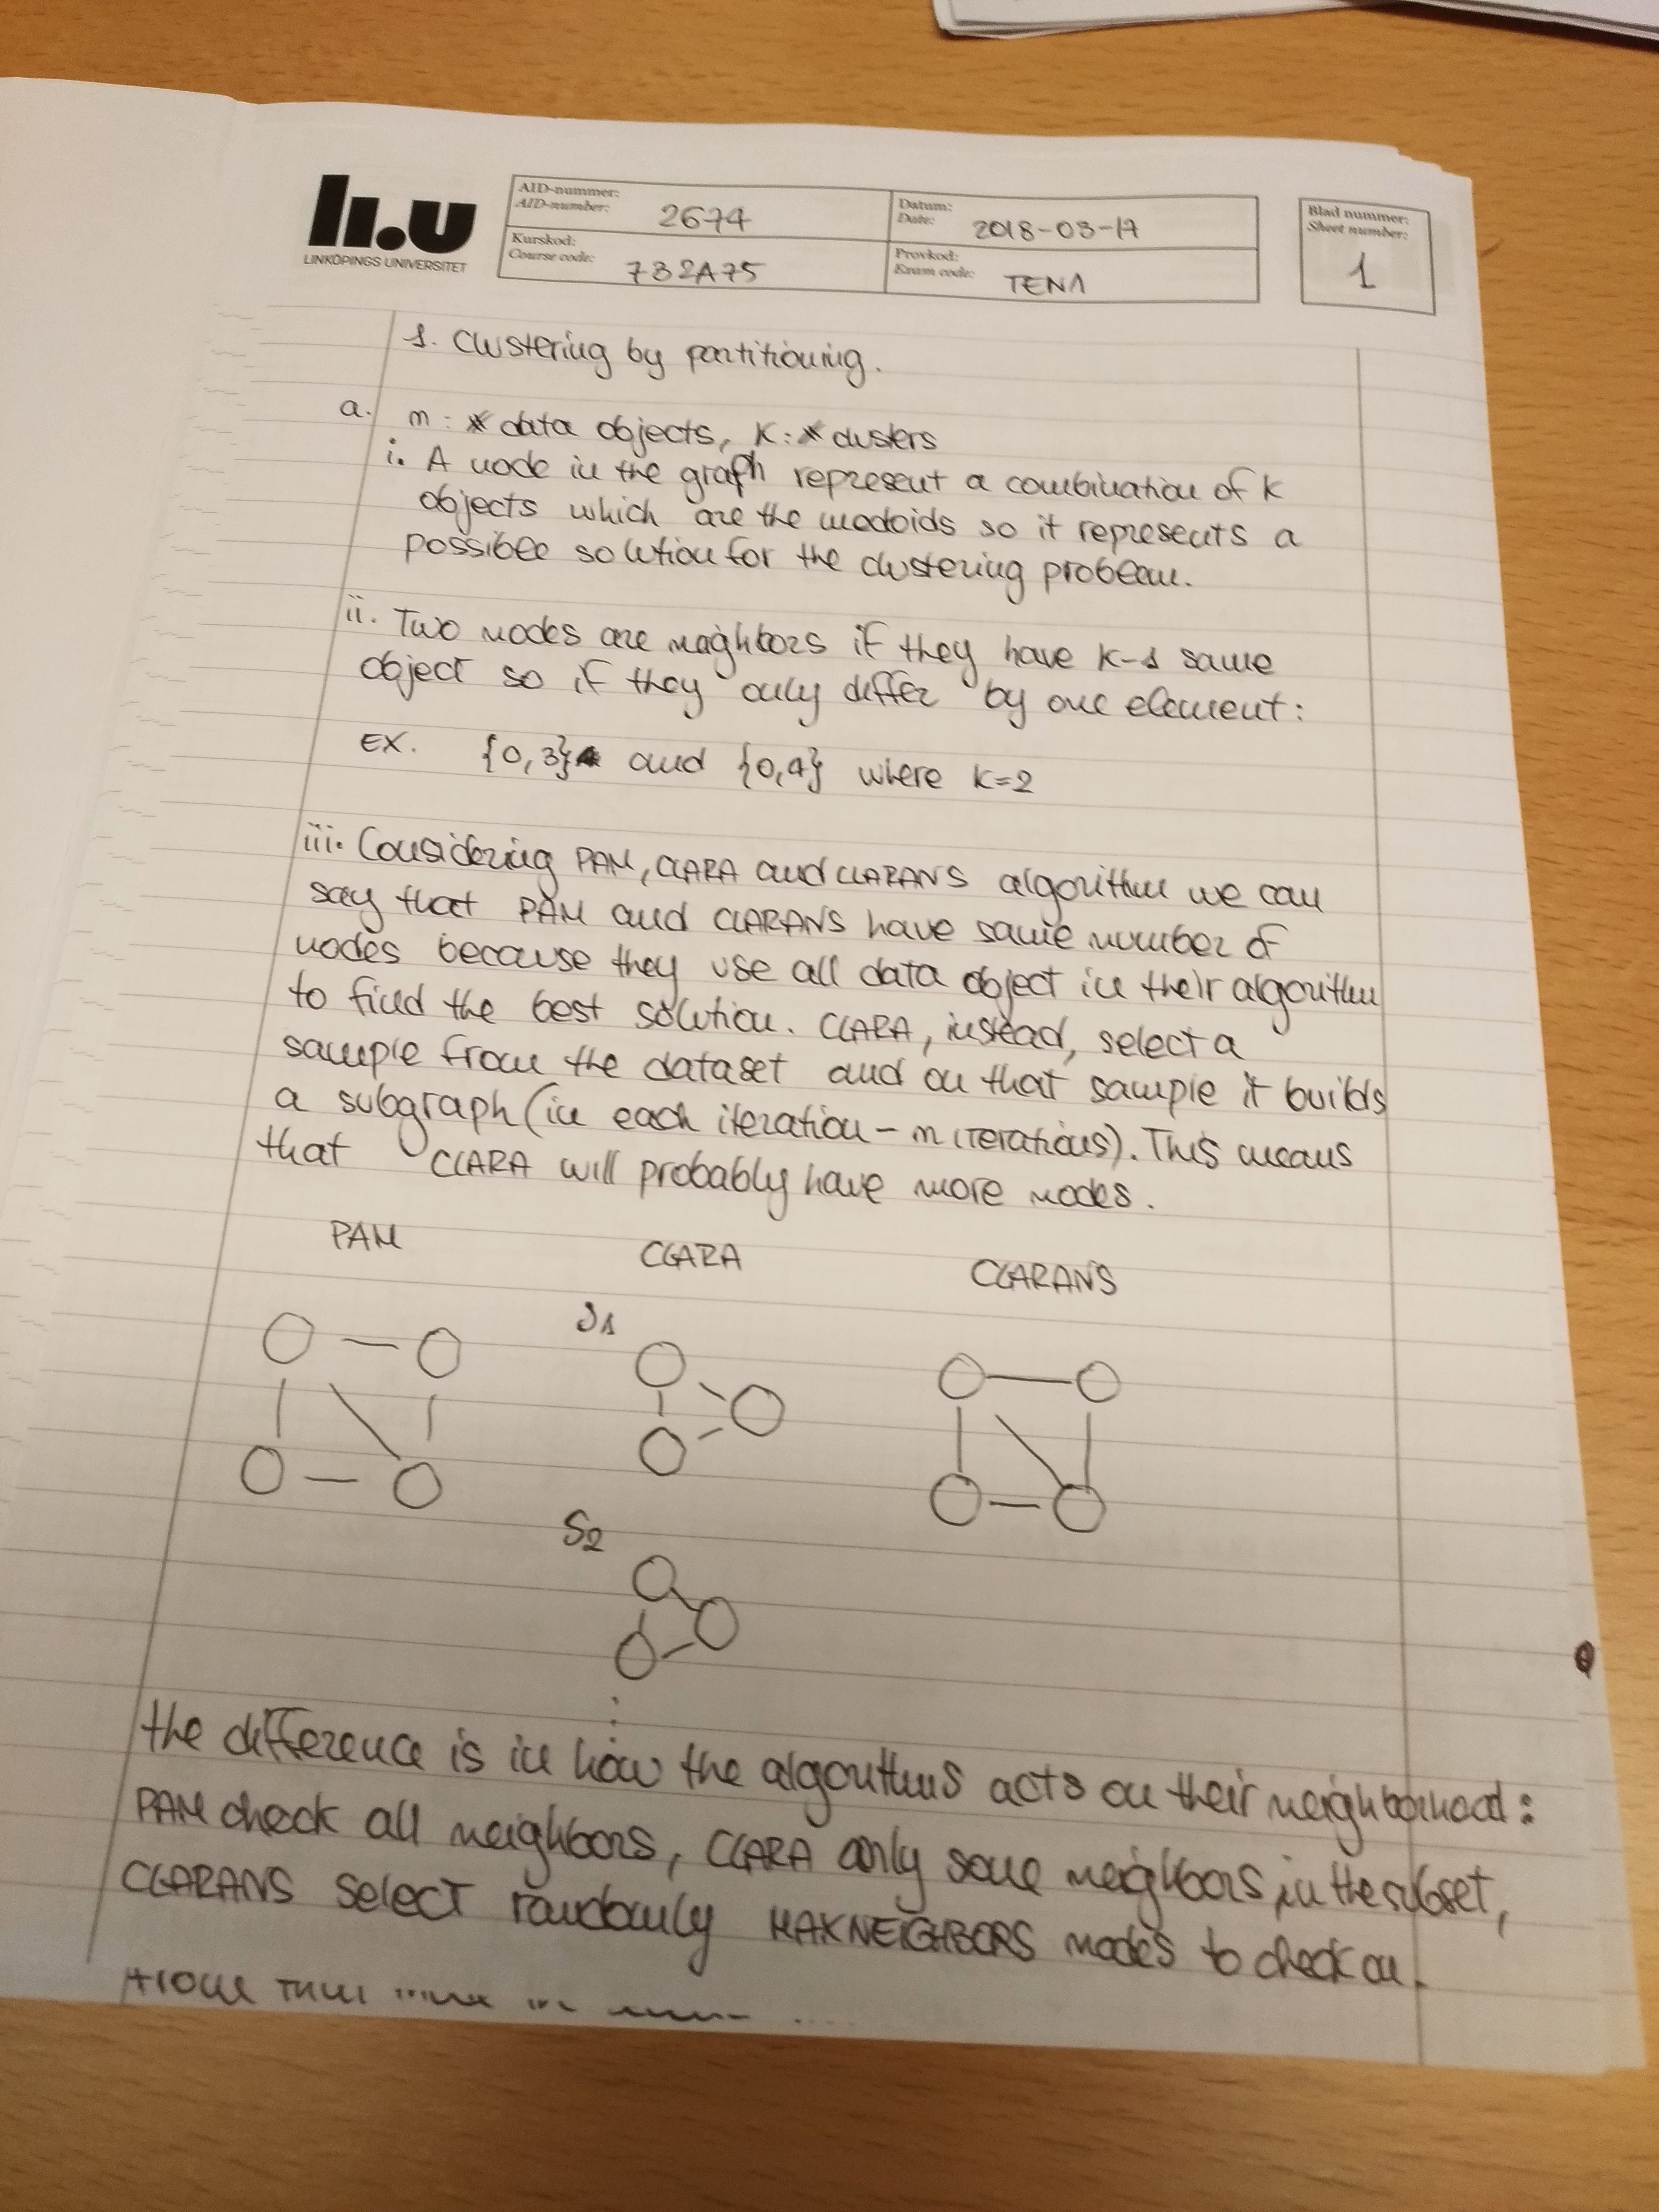 li.u
LINKÖPINGS UNIVERSITET
AID-nummer:
AID-number:
2674
Datum:
Date:
2018-03-17
Kurskod:
Course code:
732A75
Provkod:
Exam code:
TEN1
Blad nummer:
Sheet number:
1
1. Clustering by partitioning.
a. n: # data objects, K: # clusters
i. A node in the graph represent a combination of K
objects which are the medoids so it represents a
possible solution for the clustering problem.
ii. Two nodes are neighbors if they have K-1 same
object so if they only differ by one element:
EX. {0,3} and {0,4} where K=2
iii. Considering PAM, CLARA and CLARANS algorithm we can
say that PAM and CLARANS have same number of
nodes because they use all data object in their algorithm
to find the best solution. CLARA, instead, select a
sample from the dataset and on that sample it builds
a subgraph (in each iteration - n iterations). This means
that CLARA will probably have more nodes.
PAM CLARA CLARANS
S1
S2
the difference is in how the algorithms acts on their neighborhood:
PAM check all neighbors, CLARA only some neighbors in the subset,
CLARANS select randomly MAXNEIGHBORS nodes to check on.